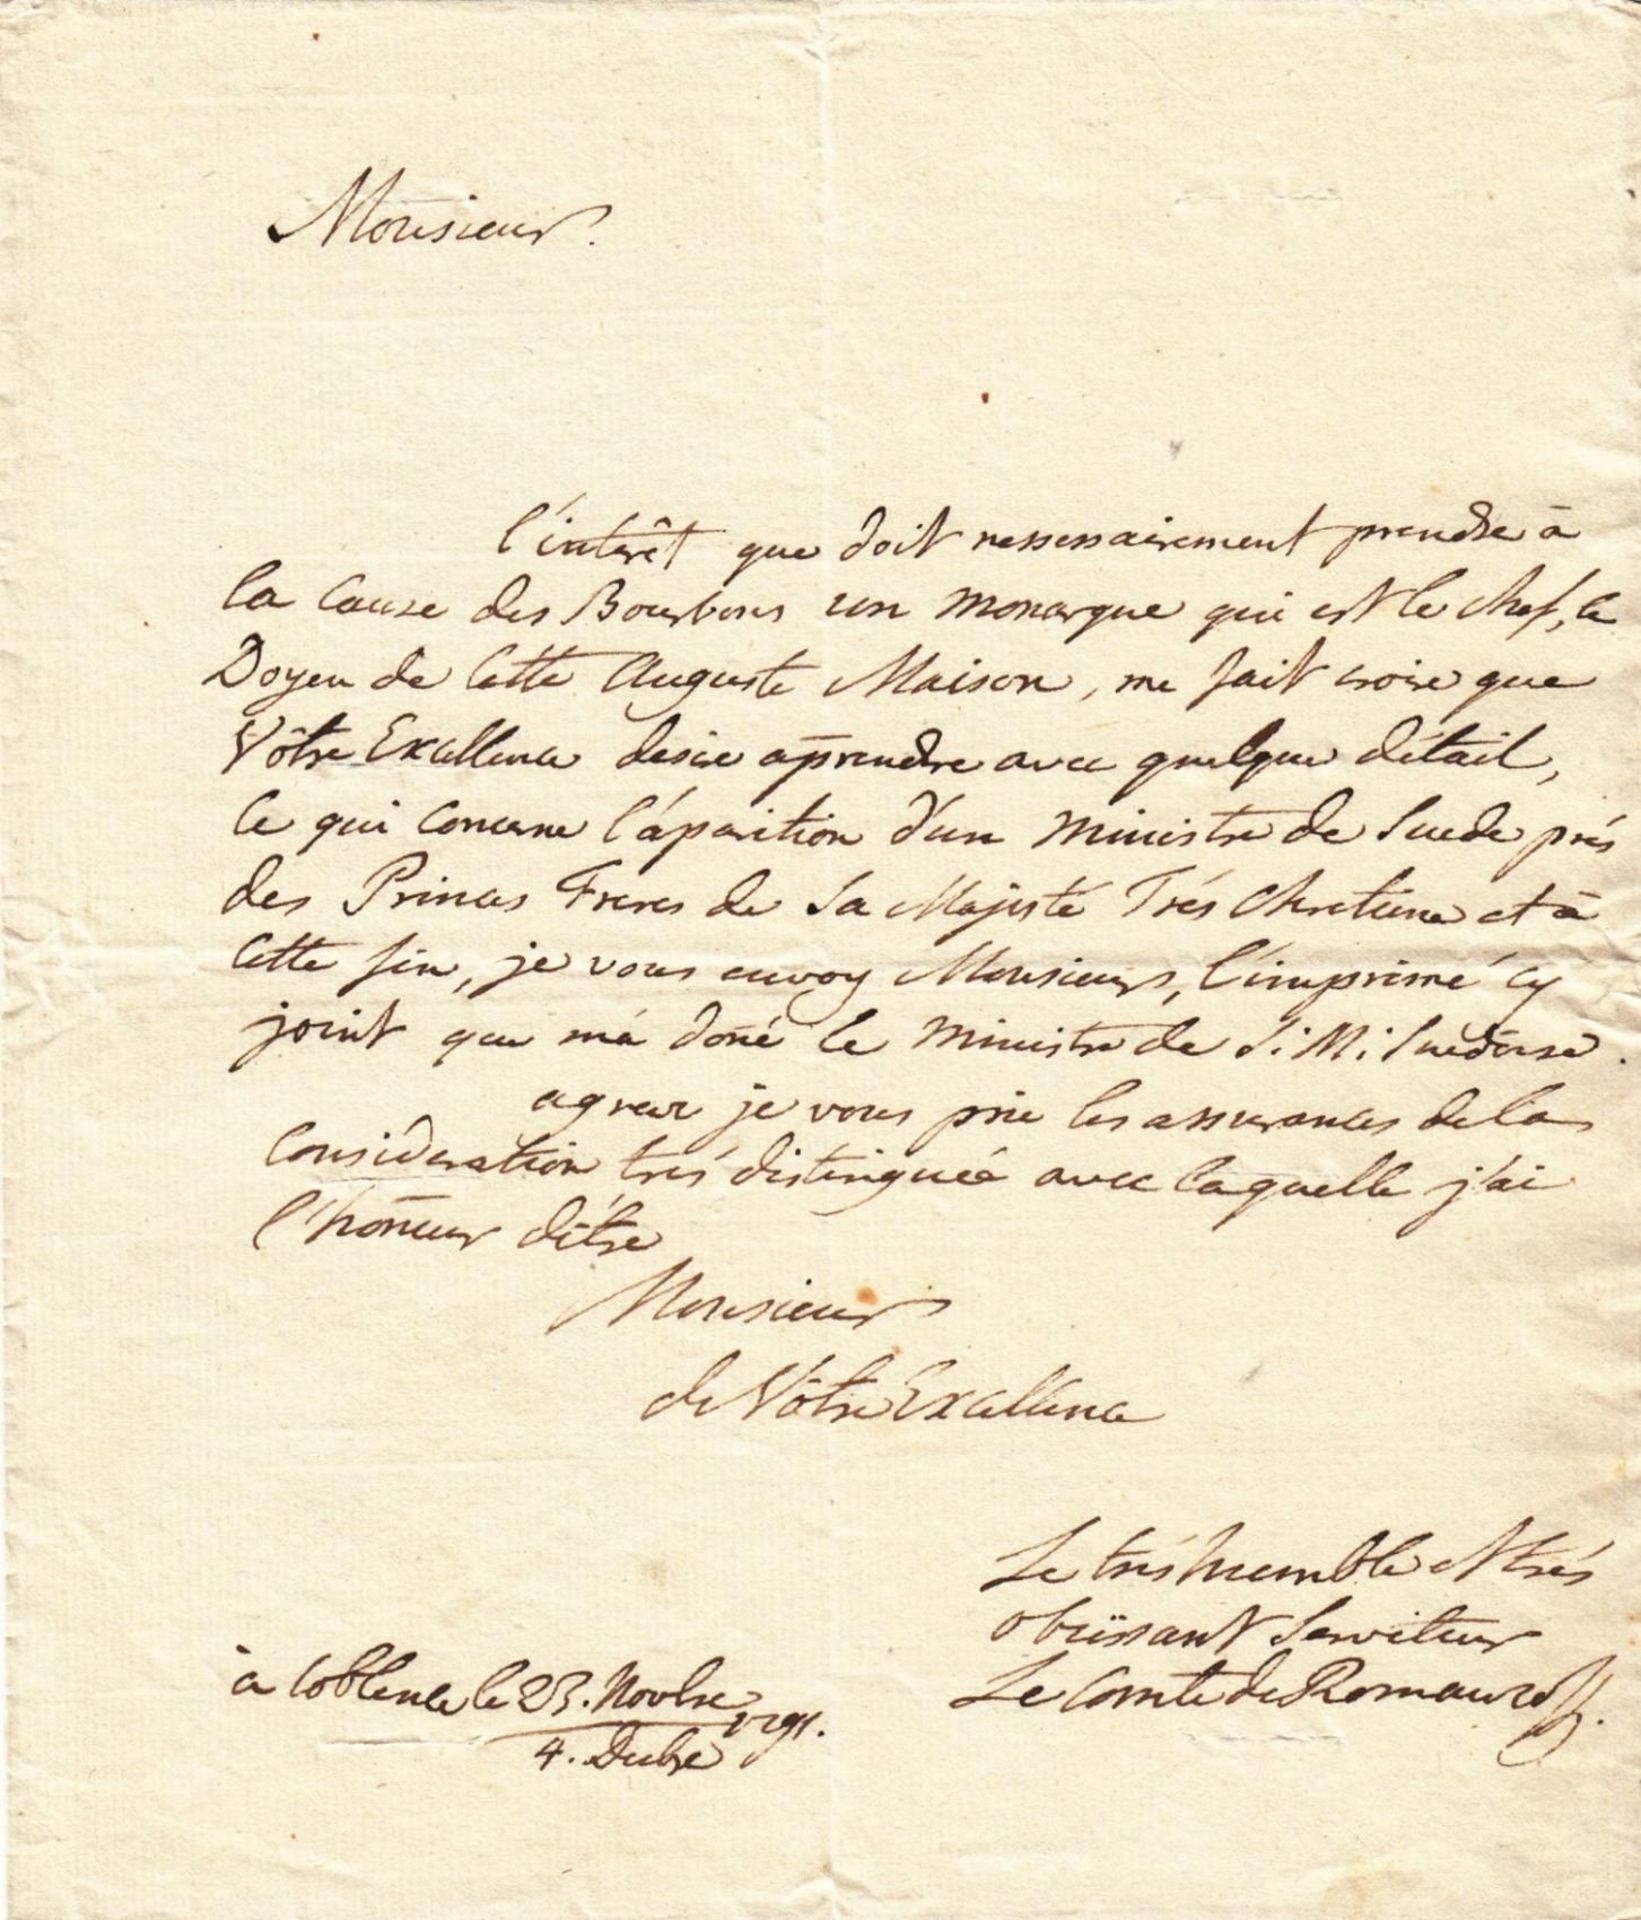 Monsieur.
l'intarêt que doit nessessairement prendre à
la Cause des Bourbons un Monarque qui est le chef, le
Doyen de Cette Auguste Maison, me fait croire que
Vôtre Excellence desire aprendre avec quelque détail,
ce qui Concerne l'áparition d'un Ministre de Suede prés
des Princes Freres de Sa Majesté Trés Chretiene et à
Cette fin, je vous envoy Monsieur, l'imprimé cy
joint que má doné le Ministre de S: M: Suedoise.
agreer je vous prie les assurances de la
Consideration trés distinguée avec laquelle j'ai
l'honeur d'être
Monsieur
de Vôtre Excellence
Le trés humble et trés
obeïssant Serviteur
Le Comte de Romanzoff.
à Coblence le 23. Novbre
1791.
4. Decbre